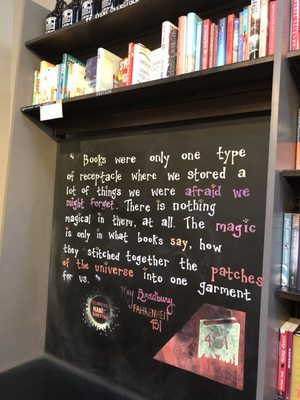 " Books were only one type
of receptacle where we stored a
lot of things we were afraid we
might forget. There is nothing
magical in them, at all. The magic
is only in what books say, how
they stitched together the patches
of the universe into one garment
for us. "
Ray Bradbury
FAHRENHEIT
451
451